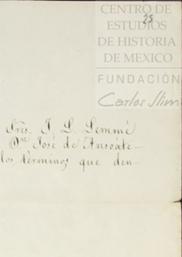 CENTRO DE
25
ESTUDIOS
DE HISTORIA
DE MEXICO
FUNDACIÓN
Carlos Slim
Sres. J. L. Lemmé
José de Ansoáte-
los términos que den-